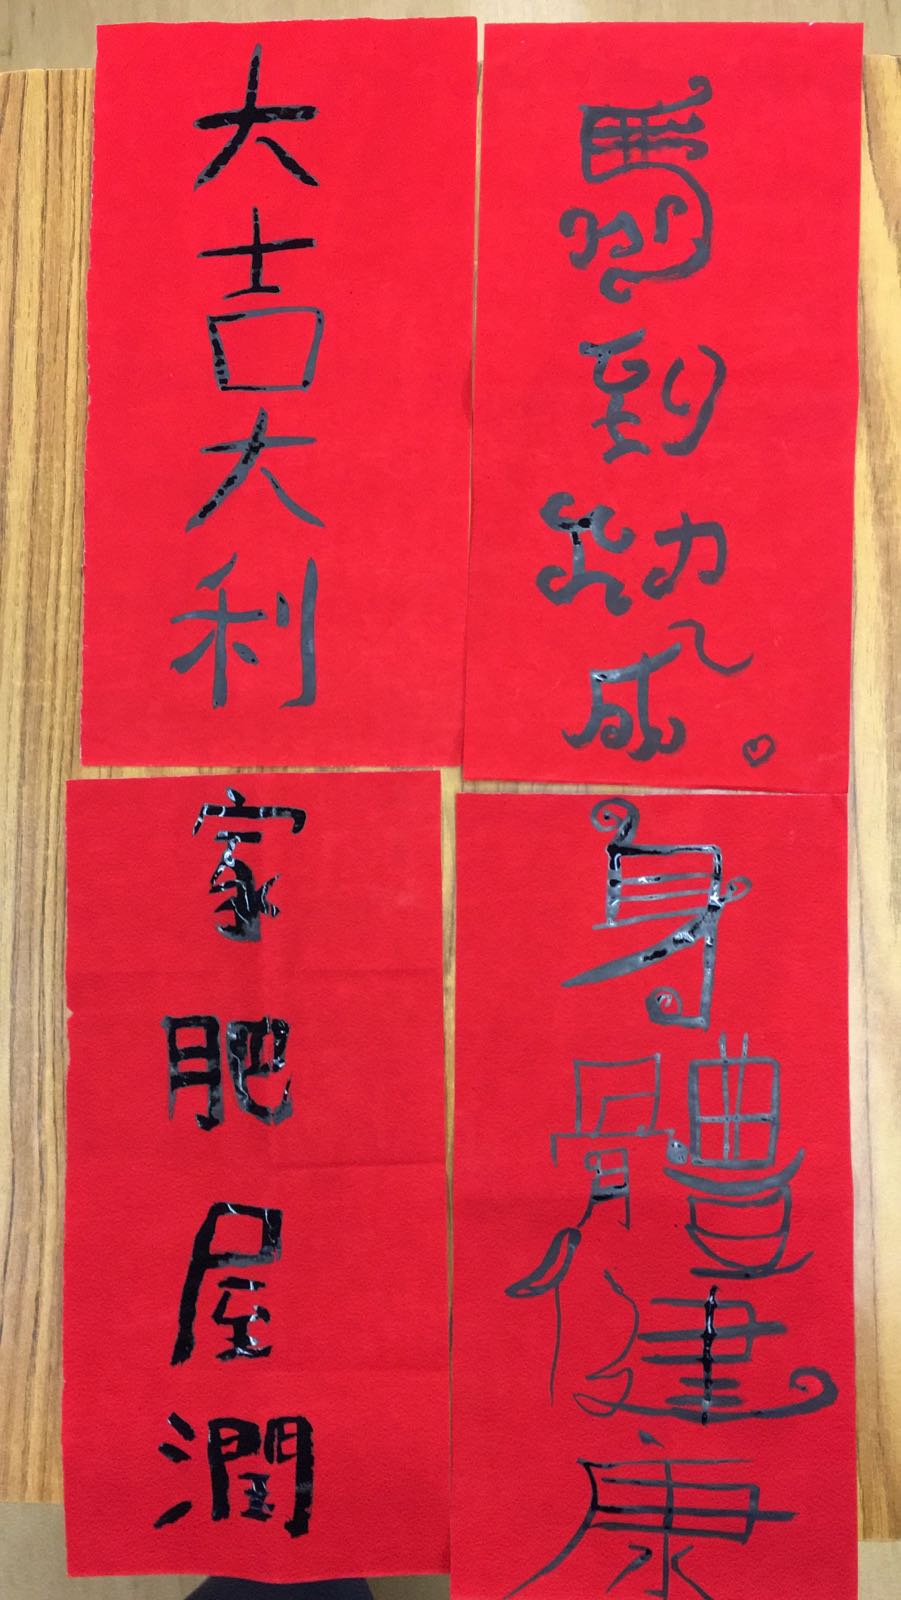 大吉大利
馬到功成。
家肥屋潤
身體健康